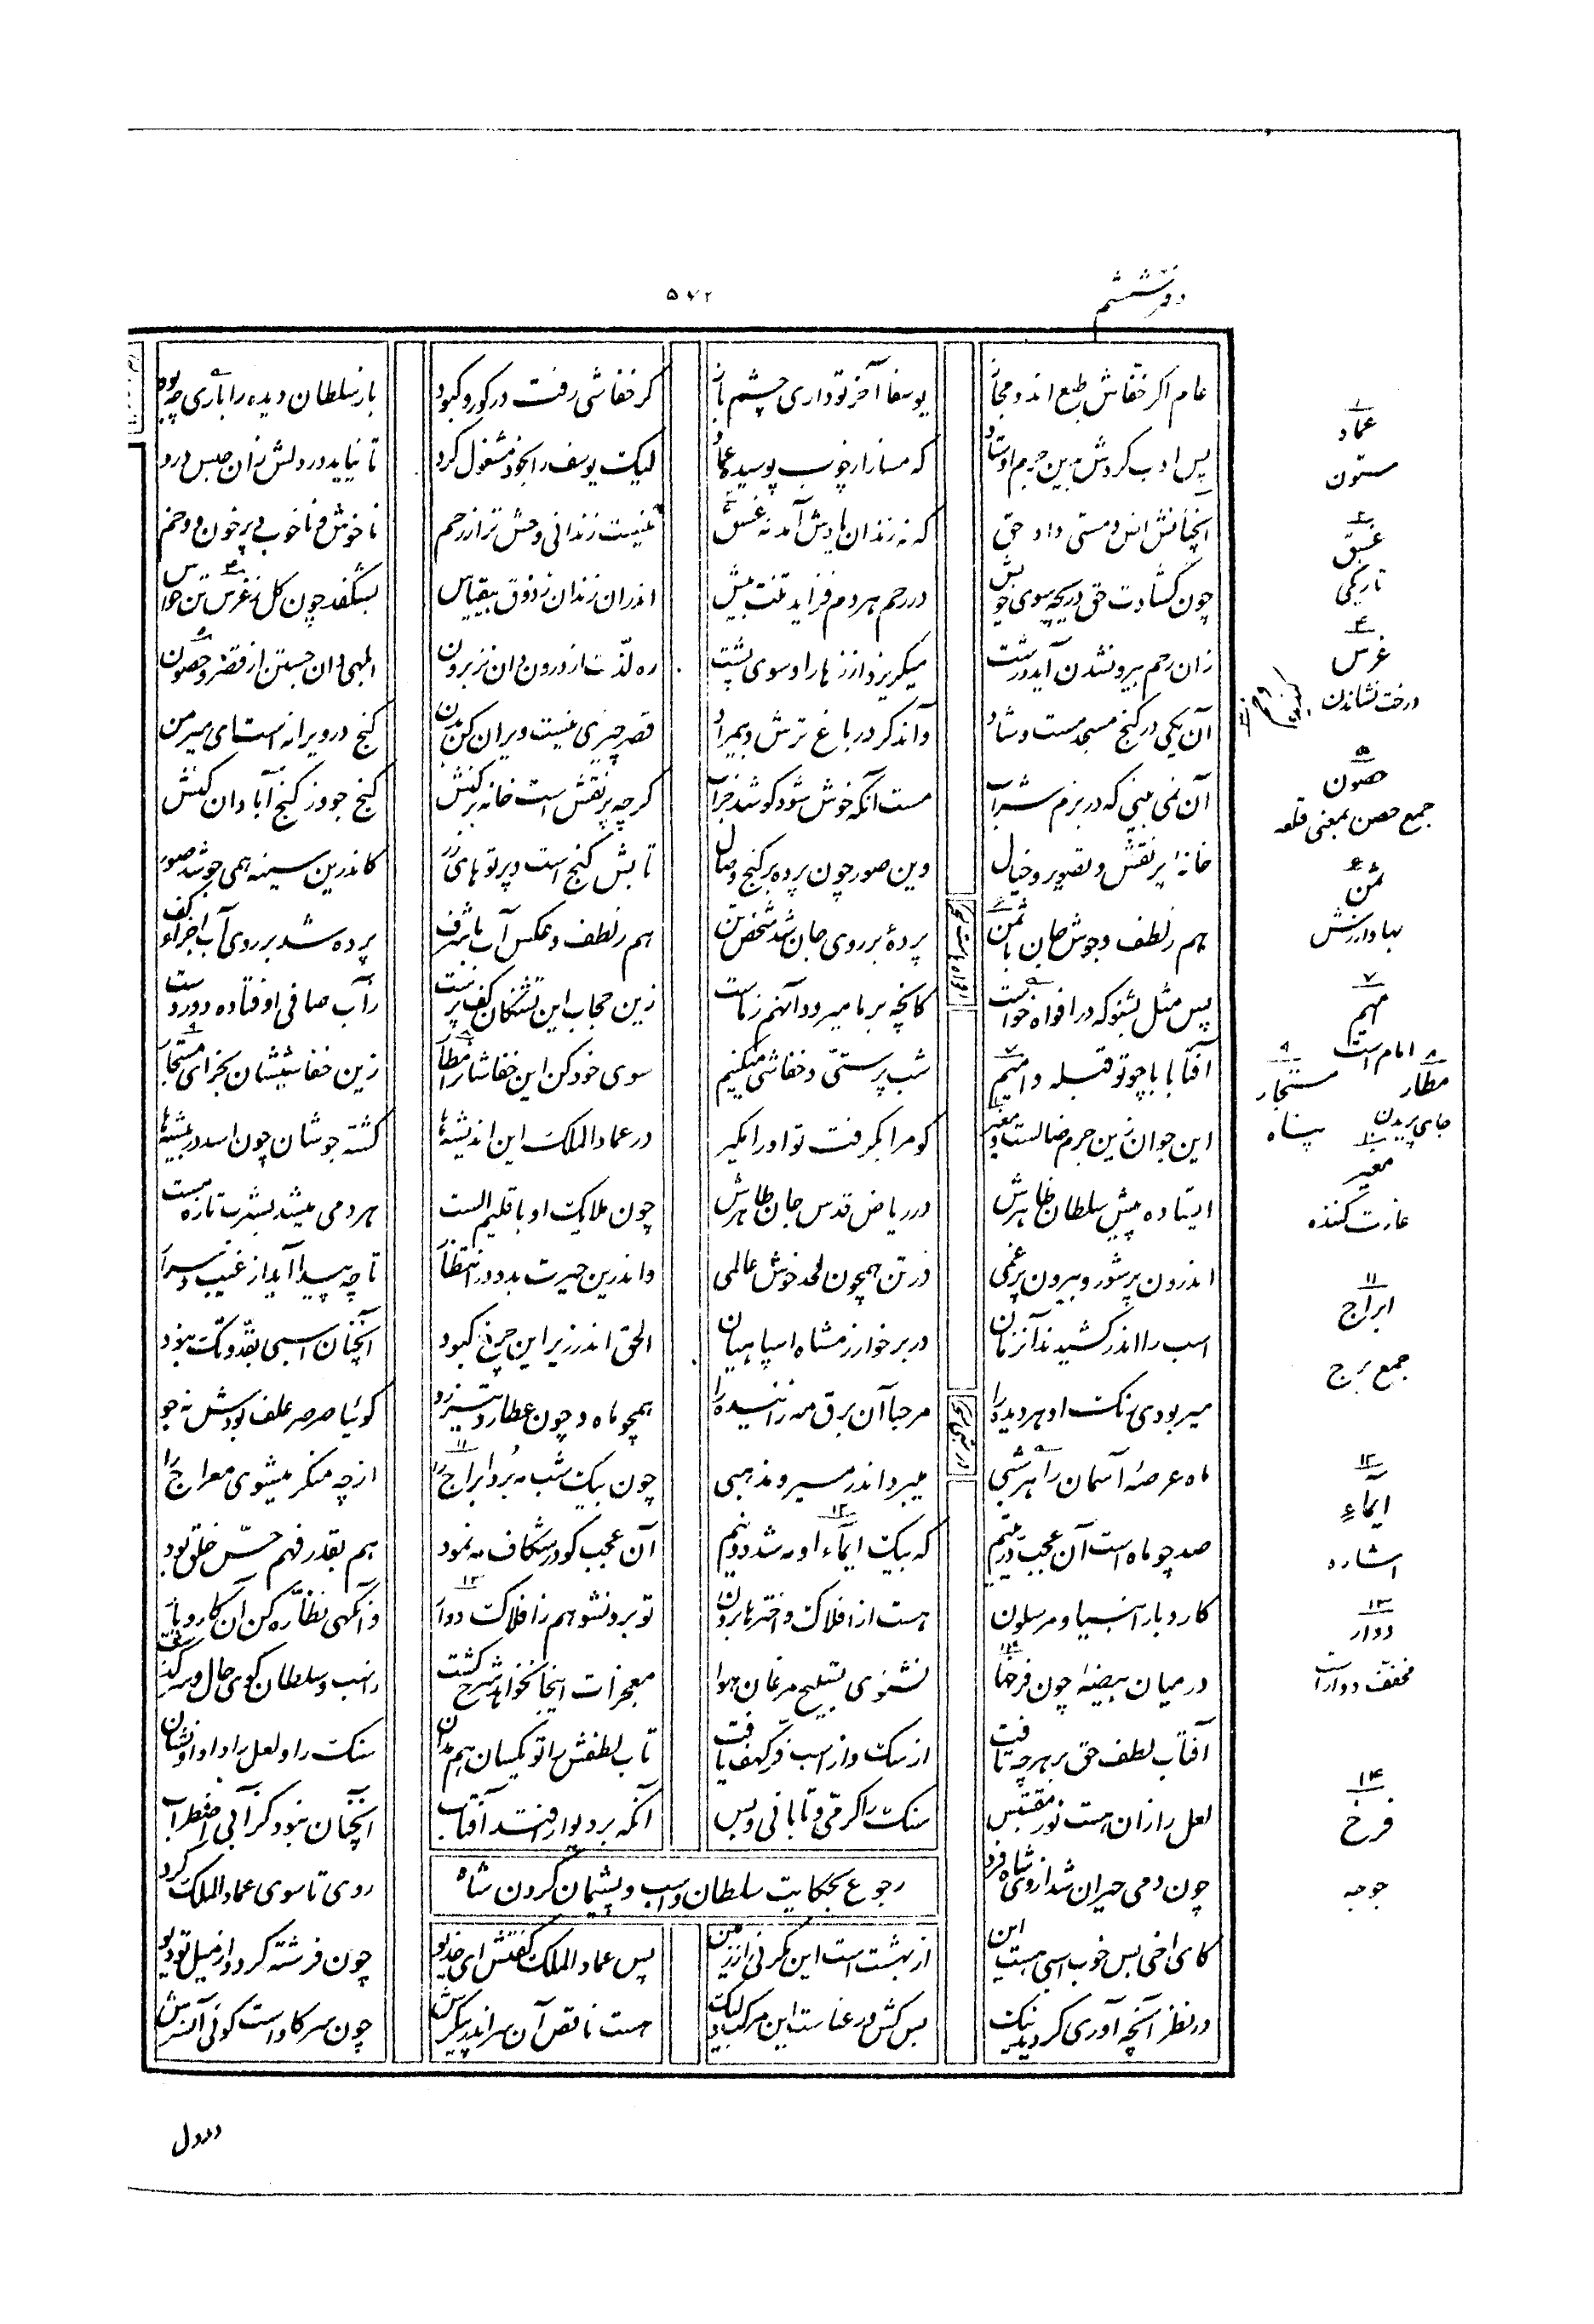 دفتر ششم
۵۷۲
عام اگر خفاش طبع اند و مجاز یوسفا آخر تو داری چشم باز گر خفاشی رفت در کور و کبود باز سلطان دیده را باری چه بود
پس ادب کردش بدین جرم اوستاد که مساز از چوب پوسیده عماد لیک یوسف را بخود مشغول کرد تا نیاید در دلش زان حبس درد
آنچنانش انس و مستی داد حق که نه زندان یادش آمد نه غسق نیست زندانی وحش تر از رحم ناخوش و ناخوب و پر خون و وخم
چون گشادت حق دریچه سوی خویش در رحم هر دم فزاید تنت بیش اندران زندان ز ذوق بیقیاس بشگفد چون گل ز غرس تن حواس
زان رحم بیرونشدن آید درشت میگریزد از زهارا و سوی پشت ره لذت از درون دان نز برون ابلهی دان جستن از قصر و حصون
آن یکی در کنج مسجد مست و شاد واندگر در باغ ترش و بیمراد قصر چیزی نیست ویران کن بدن گنج در ویرانه است ای میر من
آن نمی بینی که در بزم شراب مست آنگه خوش شود کو شد خراب گرچه پر نقش است خانه برکنش گنج جو وز گنج آبادان کنش
خانه پر نقش و تصویر و خیال وین صور چون پرده بر گنج وصال تابش گنج است و پرتوهای زر کاندرین سینه همی جوشد صور
هم ز لطف و جوش جان با ثمن پردۀ بر روی جان شد شخص تن هم ز لطف و عکس آب با شرف پرده شد بر روی آب اجزای کف
پس مثل بشنو که در افواه خواست کانچه بر ما میرود آنهم ز ماست زین حجاب این تشنگان کف پرست ز آب صافی اوفتاده دوردست
آفتابا با چو تو قبله و امیم شب پرستی و خفاشی میکنیم سوی خود کن این خفاشانرا مطار زین خفاشیشان بخر ای مستجار
این جوان زین جرم ضالست و مغیر کو مرا بگرفت تو او را مگیر در عمادالملک این اندیشه‌ها گشته جوشان چون اسد در بیشه‌ها
ایستاده پیش سلطان ظاهرش در ریاض قدس جان طاهرش چون ملایک او باقلیم الست هر دمی میشد بشرب تازه مست
اندرون پر شور و بیرون پر غمی در تن همچون لحد خوش عالمی واندرین حیرت بد و در انتظار تا چه پیدا آید از غیب و سرار
اسب را اندر کشیدند آنزمان در بر خوارزمشاه اسپاهیان الحق اندر زیر این چرخ کبود آنچنان اسبی بقد و تگ نبود
میربودی رنگ او هر دیده را مرحبا آن برق مه زائیده را همچو ماه و چون عطارد تیزرو گوئیا صرصر علف بودش نه جو
ماه عرصه آسمان را هر شبی میبرد اندر مسیر و مذهبی چون بیک شب مه برد ابراج را از چه منکر میشوی معراج را
صد چو ماه است آن عجب در یتیم که بیک ایماء او مه شد دو نیم آن عجب کو در شکاف مه نمود هم بقدر فهم حس خلق بود
کار و بار انبیا و مرسلون هست از افلاک و اخترها برون تو برونشو هم ز افلاک دوار وانگهی نظاره کن آن کار و بار
در میان بیضه چون فرخها نشنوی تسبیح مرغان هوا معجزات اینجا نخواهد شرح گشت ز اسب و سلطان گوی حال و سرگذشت
آفتاب لطف حق بر هر چه تافت از سگ و از اسب فر کهف یافت تاب لطفش را تو یکسان هم مدان سنگ را و لعل را داد او نشان
لعل را زان هست نور مقتبس سنگ را گرمی و تابانی و بس آنکه بر دیوار افتد آفتاب آنچنان نبود کز آبی اضطراب
چون دمی حیران شد از وی شاه فرد رجوع بحکایت سلطان و اسب و پشیمان کردن شاه روی تا سوی عمادالملک کرد
کای اخی بس خوب اسبی هست این از بهشت است این مگر نی از زمین پس عمادالملک گفتش ای خدیو چون فرشته گردد از میل تو دیو
در نظر آنچه آوری گردید نیک بس کش و رعناست این مرکب ولیک هست ناقص آن سر اندر پیکرش چون سر گاو است گوئی آنسرش
۱
عماد
ستون
غسق
تاریکی
غرس
درخت نشاندن
۵
حصون
جمع حصن بمعنی قلعه
ثمن
بها و ارزش
۷
امیم
امام است
۸
مطار
جای پریدن
۹
مستجار
پناه
۱۰
مغیر
غارت کننده
۱۱
ابراج
جمع برج
۱۲
ایماء
اشاره
۱۳
دوار
مخفف دوار است
۱۴
فرخ
جوجه